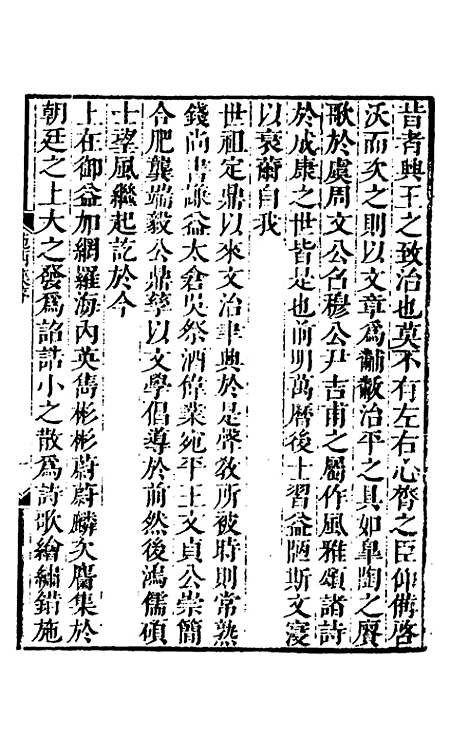 昔者興王之致治也莫不有左右心膂之臣仰備啓
沃而次之則以文章爲黼黻治平之具如臯陶之賡
歌於虞周文公召穆公尹吉甫之屬作風雅頌諸詩
於成康之世皆是也前明萬曆後士習益陋斯文寖
以衰薾自我
世祖定鼎以來文治聿興於是聲敎所被時則常熟
錢尚書謙益太倉吳祭酒偉業宛平王文貞公崇簡
合肥龔端毅公鼎孳以文學倡導於前然後鴻儒碩
士望風繼起訖於今
上在御益加網羅海內英雋彬彬蔚蔚麟次麕集於
朝廷之上大之發爲詔誥小之散爲詩歌繪繡錯施